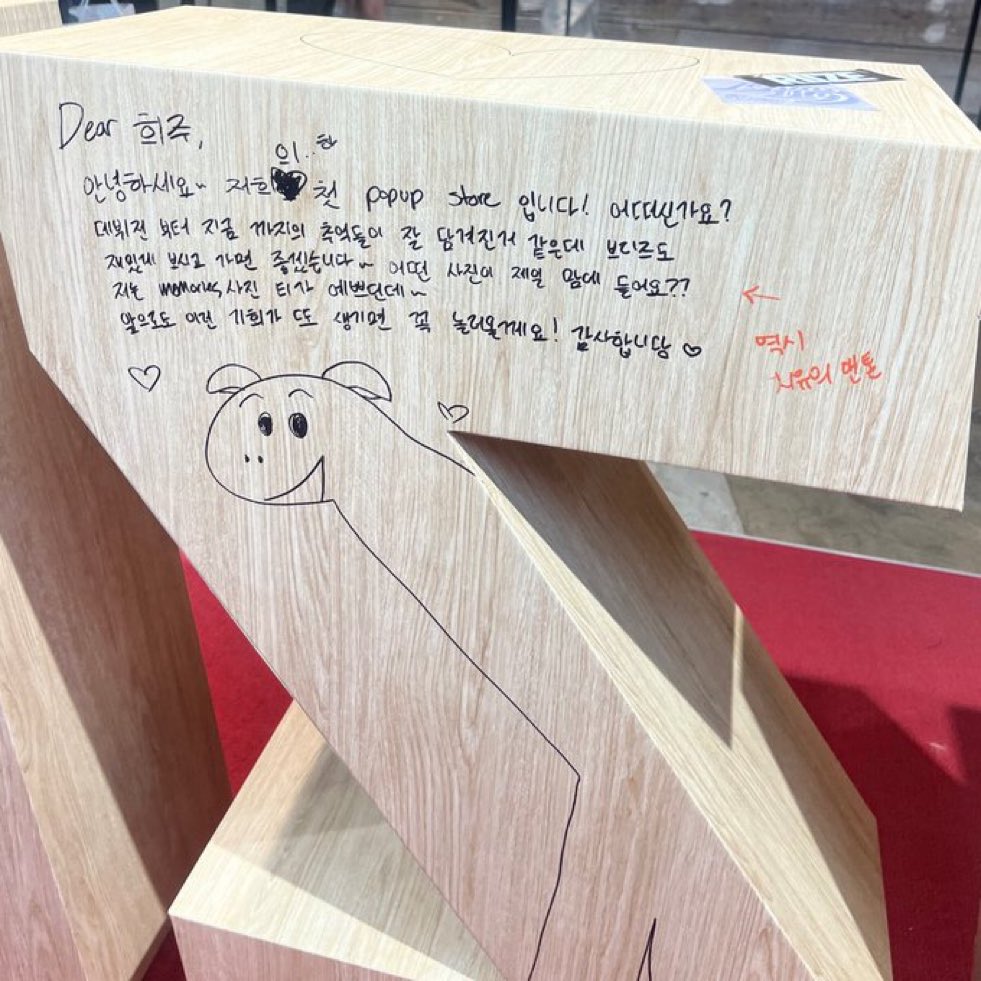 RIIZE
Dear 희주,
의..
안녕하세요~ 저희 첫 popup store 입니다! 어떠신가요?
데뷔전 부터 지금 까지의 추억들이 잘 담겨진거 같은데 브리즈도
재밌게 보시고 가면 좋겠습니다~ 어떤 사진이 제일 맘에 들어요??
저는 memories 사진 티가 예쁘던데~
앞으로도 이런 기회가 또 생기면 꼭 놀러올게요! 감사합니당 ♡
역시